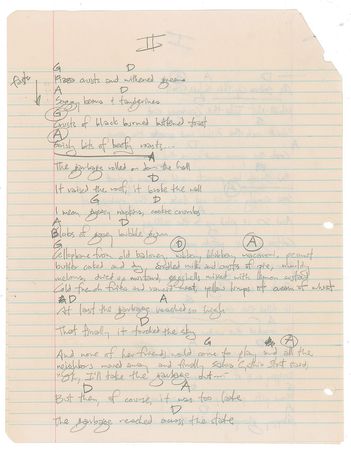 II
G D
faster Pizza crusts and withered greens
A D
Soggy beans & tangerines
G
Crusts of black burned buttered toast
A
Gristly bits of beefy roasts...
A
The garbage rolled on down the hall
D
It raised the roof, it broke the wall
G D
I mean, greasy napkins, cookie crumbs
A D
Blobs of gooey bubble gum
G D A
Cellophane from old baloney, rubbery blubbery macaroni, peanut
butter caked and dry, curdled milk and crusts of pie, moldy
melons, dried up mustard, eggshells mixed with lemon custard
Cold french fries and rancid meat, yellow lumps of cream of wheat
D A
At last the garbage reached so high
D
That finally it touched the sky
G A
And none of her friends would come to play and all the
neighbors moved away and finally Sarah Cynthia Stout said,
"Oh, I'll take the garbage out...
D A
But then, of course, it was too late
D
The garbage reached across the state